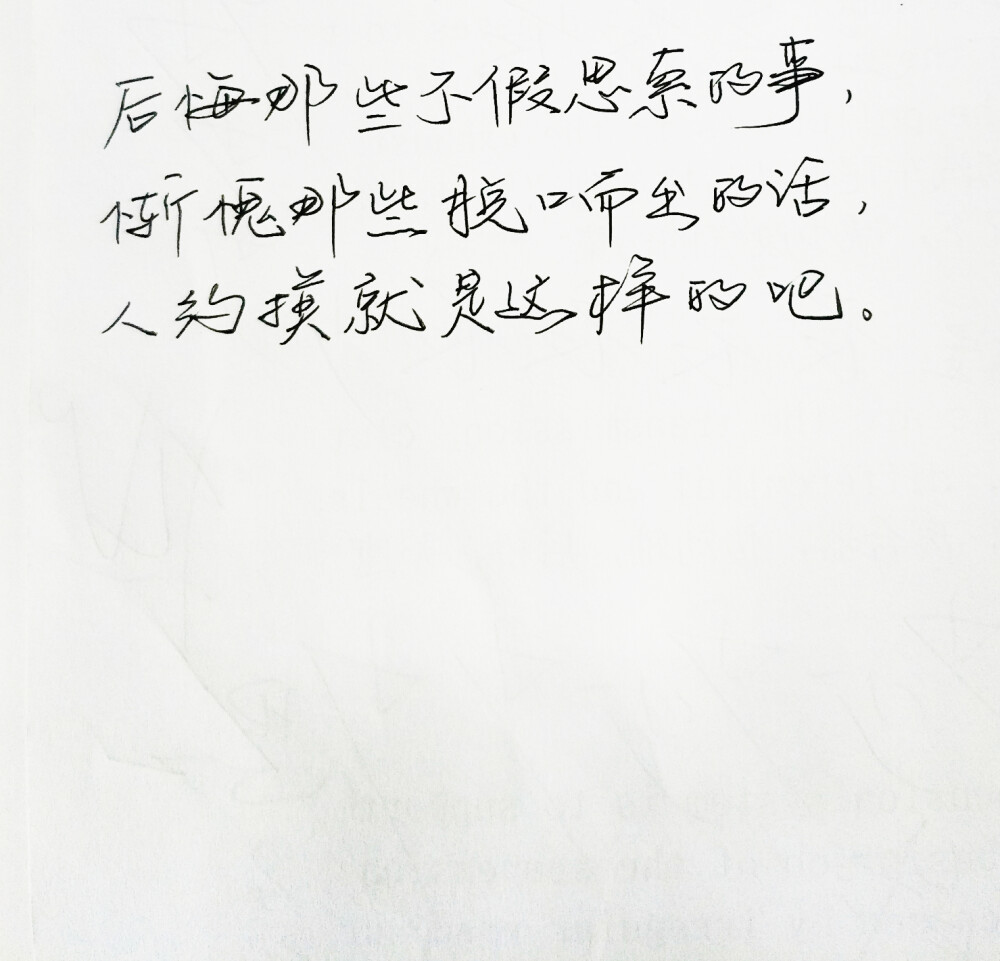 后悔那些不假思索的事，
惭愧那些脱口而出的话，
人约摸就是这样的吧。